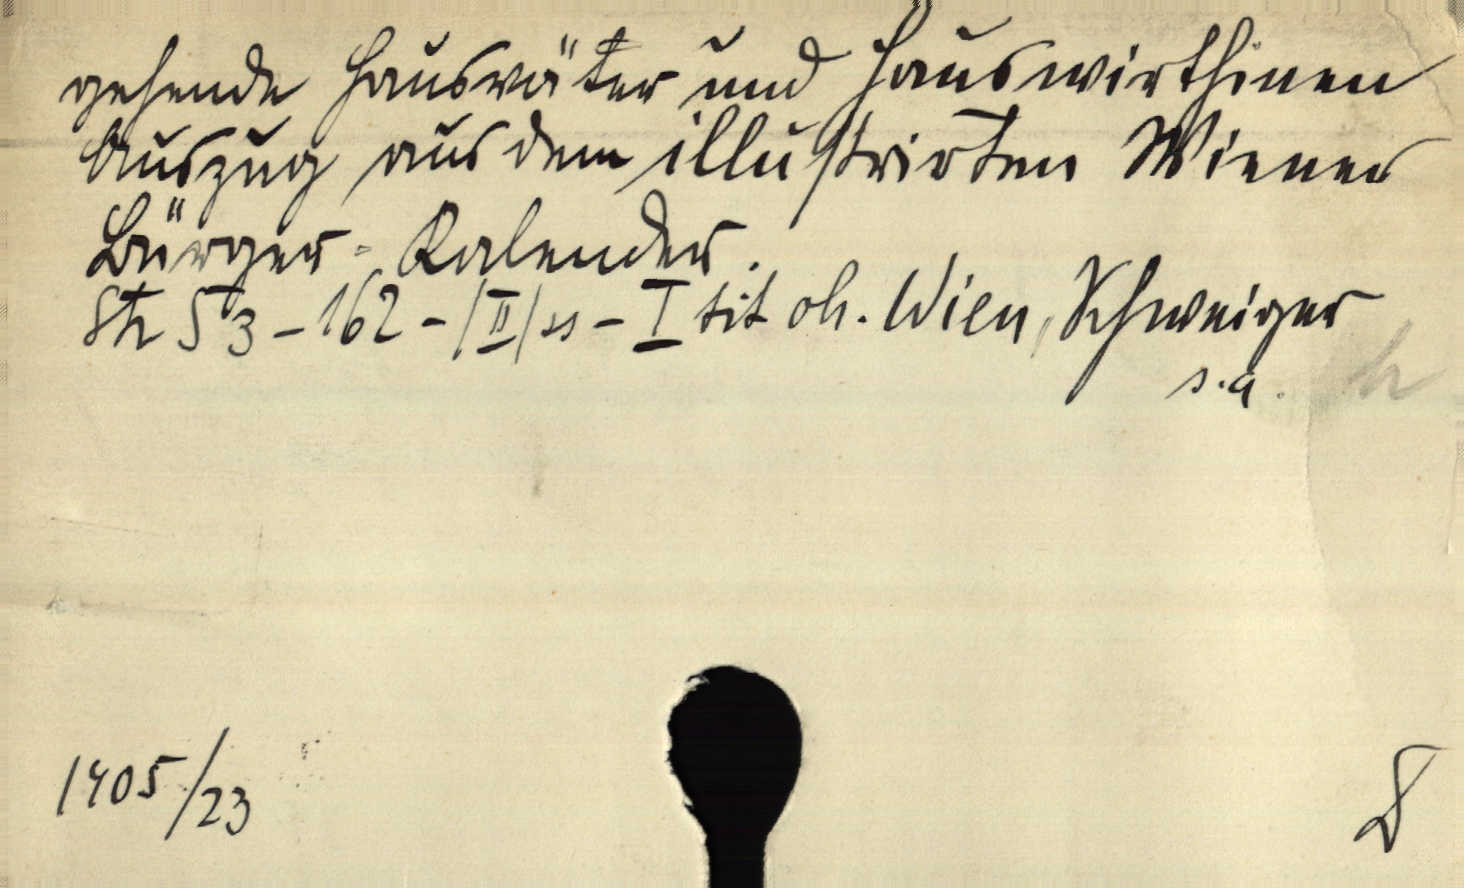 gehende Hausväter und Hauswirthinen
Auszug aus dem illustrirten Wiener
Bürger-Kalender.
53-162-|II|ss-I tit oh. Wien, Schweiger
s.a.
1905/23
8